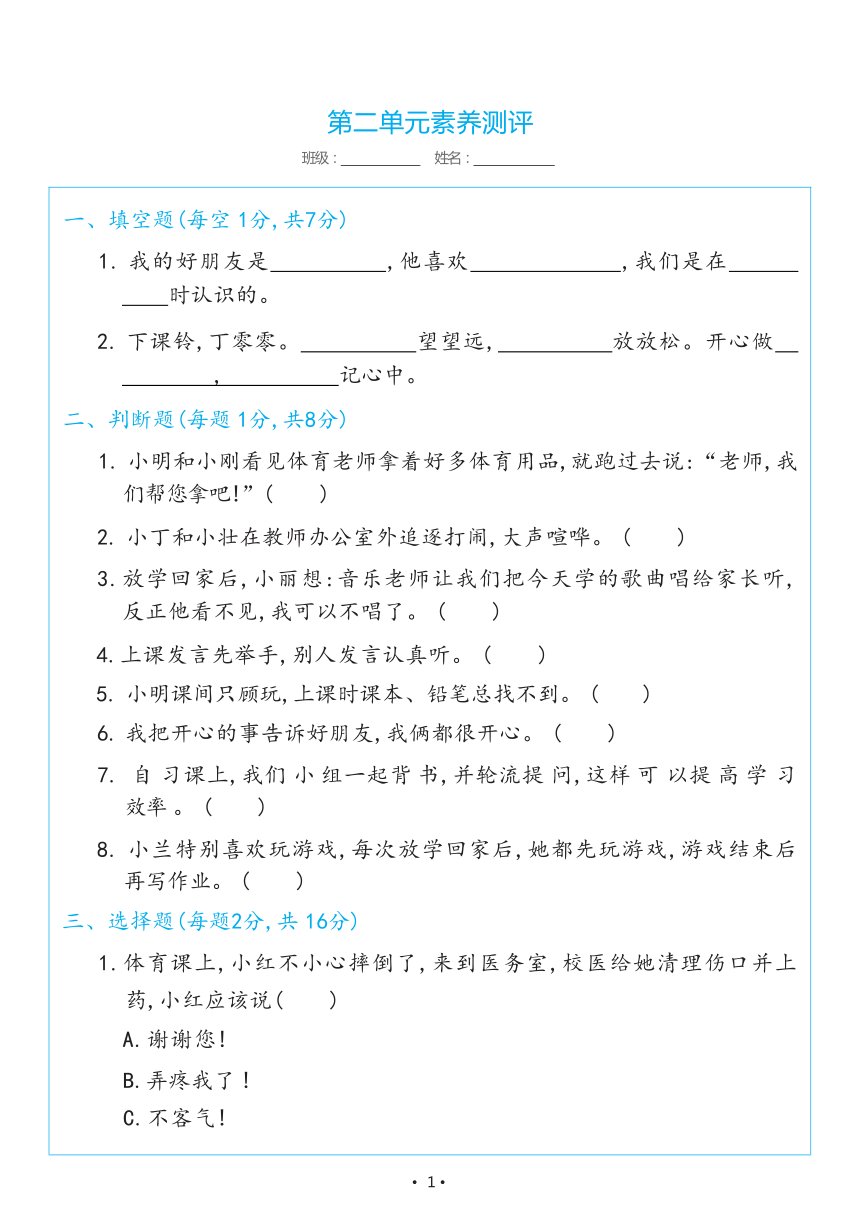 第二单元素养测评
班级：__________ 姓名：__________
一、填空题(每空 1分,共7分)
1. 我的好朋友是__________,他喜欢_____________,我们是在______
____时认识的。
2. 下课铃,丁零零。__________望望远,__________放放松。开心做__
________,__________记心中。
二、判断题(每题 1分,共8分)
1. 小明和小刚看见体育老师拿着好多体育用品,就跑过去说:“老师,我
们帮您拿吧!”(　　)
2. 小丁和小壮在教师办公室外追逐打闹,大声喧哗。(　　)
3.放学回家后,小丽想:音乐老师让我们把今天学的歌曲唱给家长听,
反正他看不见,我可以不唱了。(　　)
4.上课发言先举手,别人发言认真听。(　　)
5. 小明课间只顾玩,上课时课本、铅笔总找不到。(　　)
6. 我把开心的事告诉好朋友,我俩都很开心。(　　)
7. 自 习课上,我们 小 组一起背 书,并轮流提 问,这样 可 以提 高 学 习
效率 。(　　)
8. 小兰特别喜欢玩游戏,每次放学回家后,她都先玩游戏,游戏结束后
再写作业。(　　)
三、选择题(每题2分,共 16分)
1.体育课上,小红不小心摔倒了,来到医务室,校医给她清理伤口并上
药,小红应该说(　　)
A.谢谢您!
B.弄疼我了!
C.不客气!
· 1·